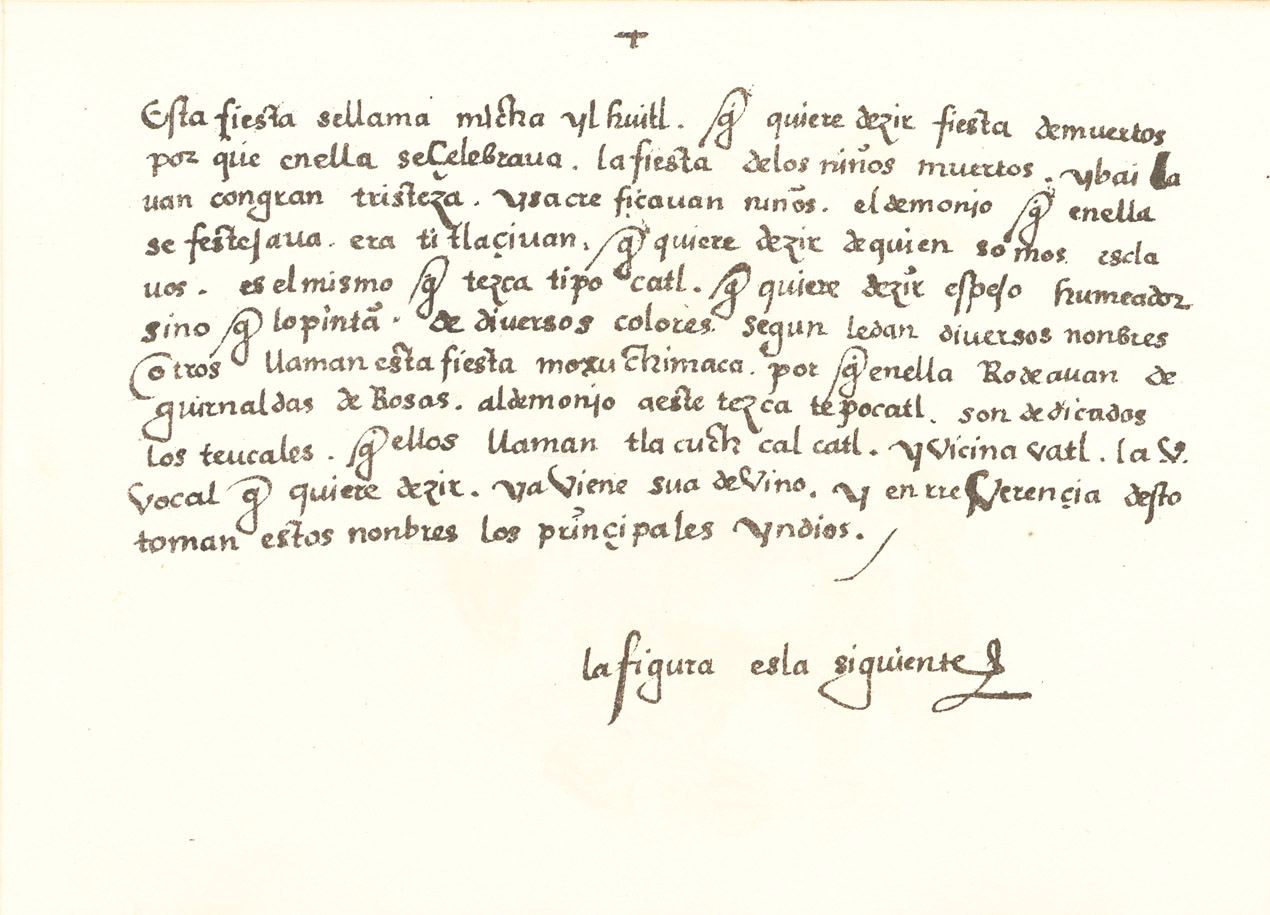 Esta fiesta sellama miccha ylhuitl. q̃ quiere dezir fiesta demuertos
por que enella seCelebraua. lafiesta delos niños muertos. ybai la
uan congran tristeza. ysacre ficauan niños. eldemonio q̃ enella
se festejaua. era titlaçiuan. q̃ quiere dezir dequien somos escla
uos. es elmismo q̃ tezca tipo catl. q̃ quiere dezir espejo humeador
sino q̃ lopintã. de diuersos colores. segun ledan diuersos nonbres
otros llaman esta fiesta moxuchimaca. por q̃ enella Rodeauan de
guirnaldas de Rosas. aldemonio aeste tezca tepocatl. son dedicados
los teucales. q̃ ellos llaman tla cuch cal catl. y Vicina vatl. la V.
Vocal q̃ quiere dezir. ya Viene sua deVino. y en rreVerençia desto
toman estos nonbres los prinçipales yndios.
lafigura esla siguiente